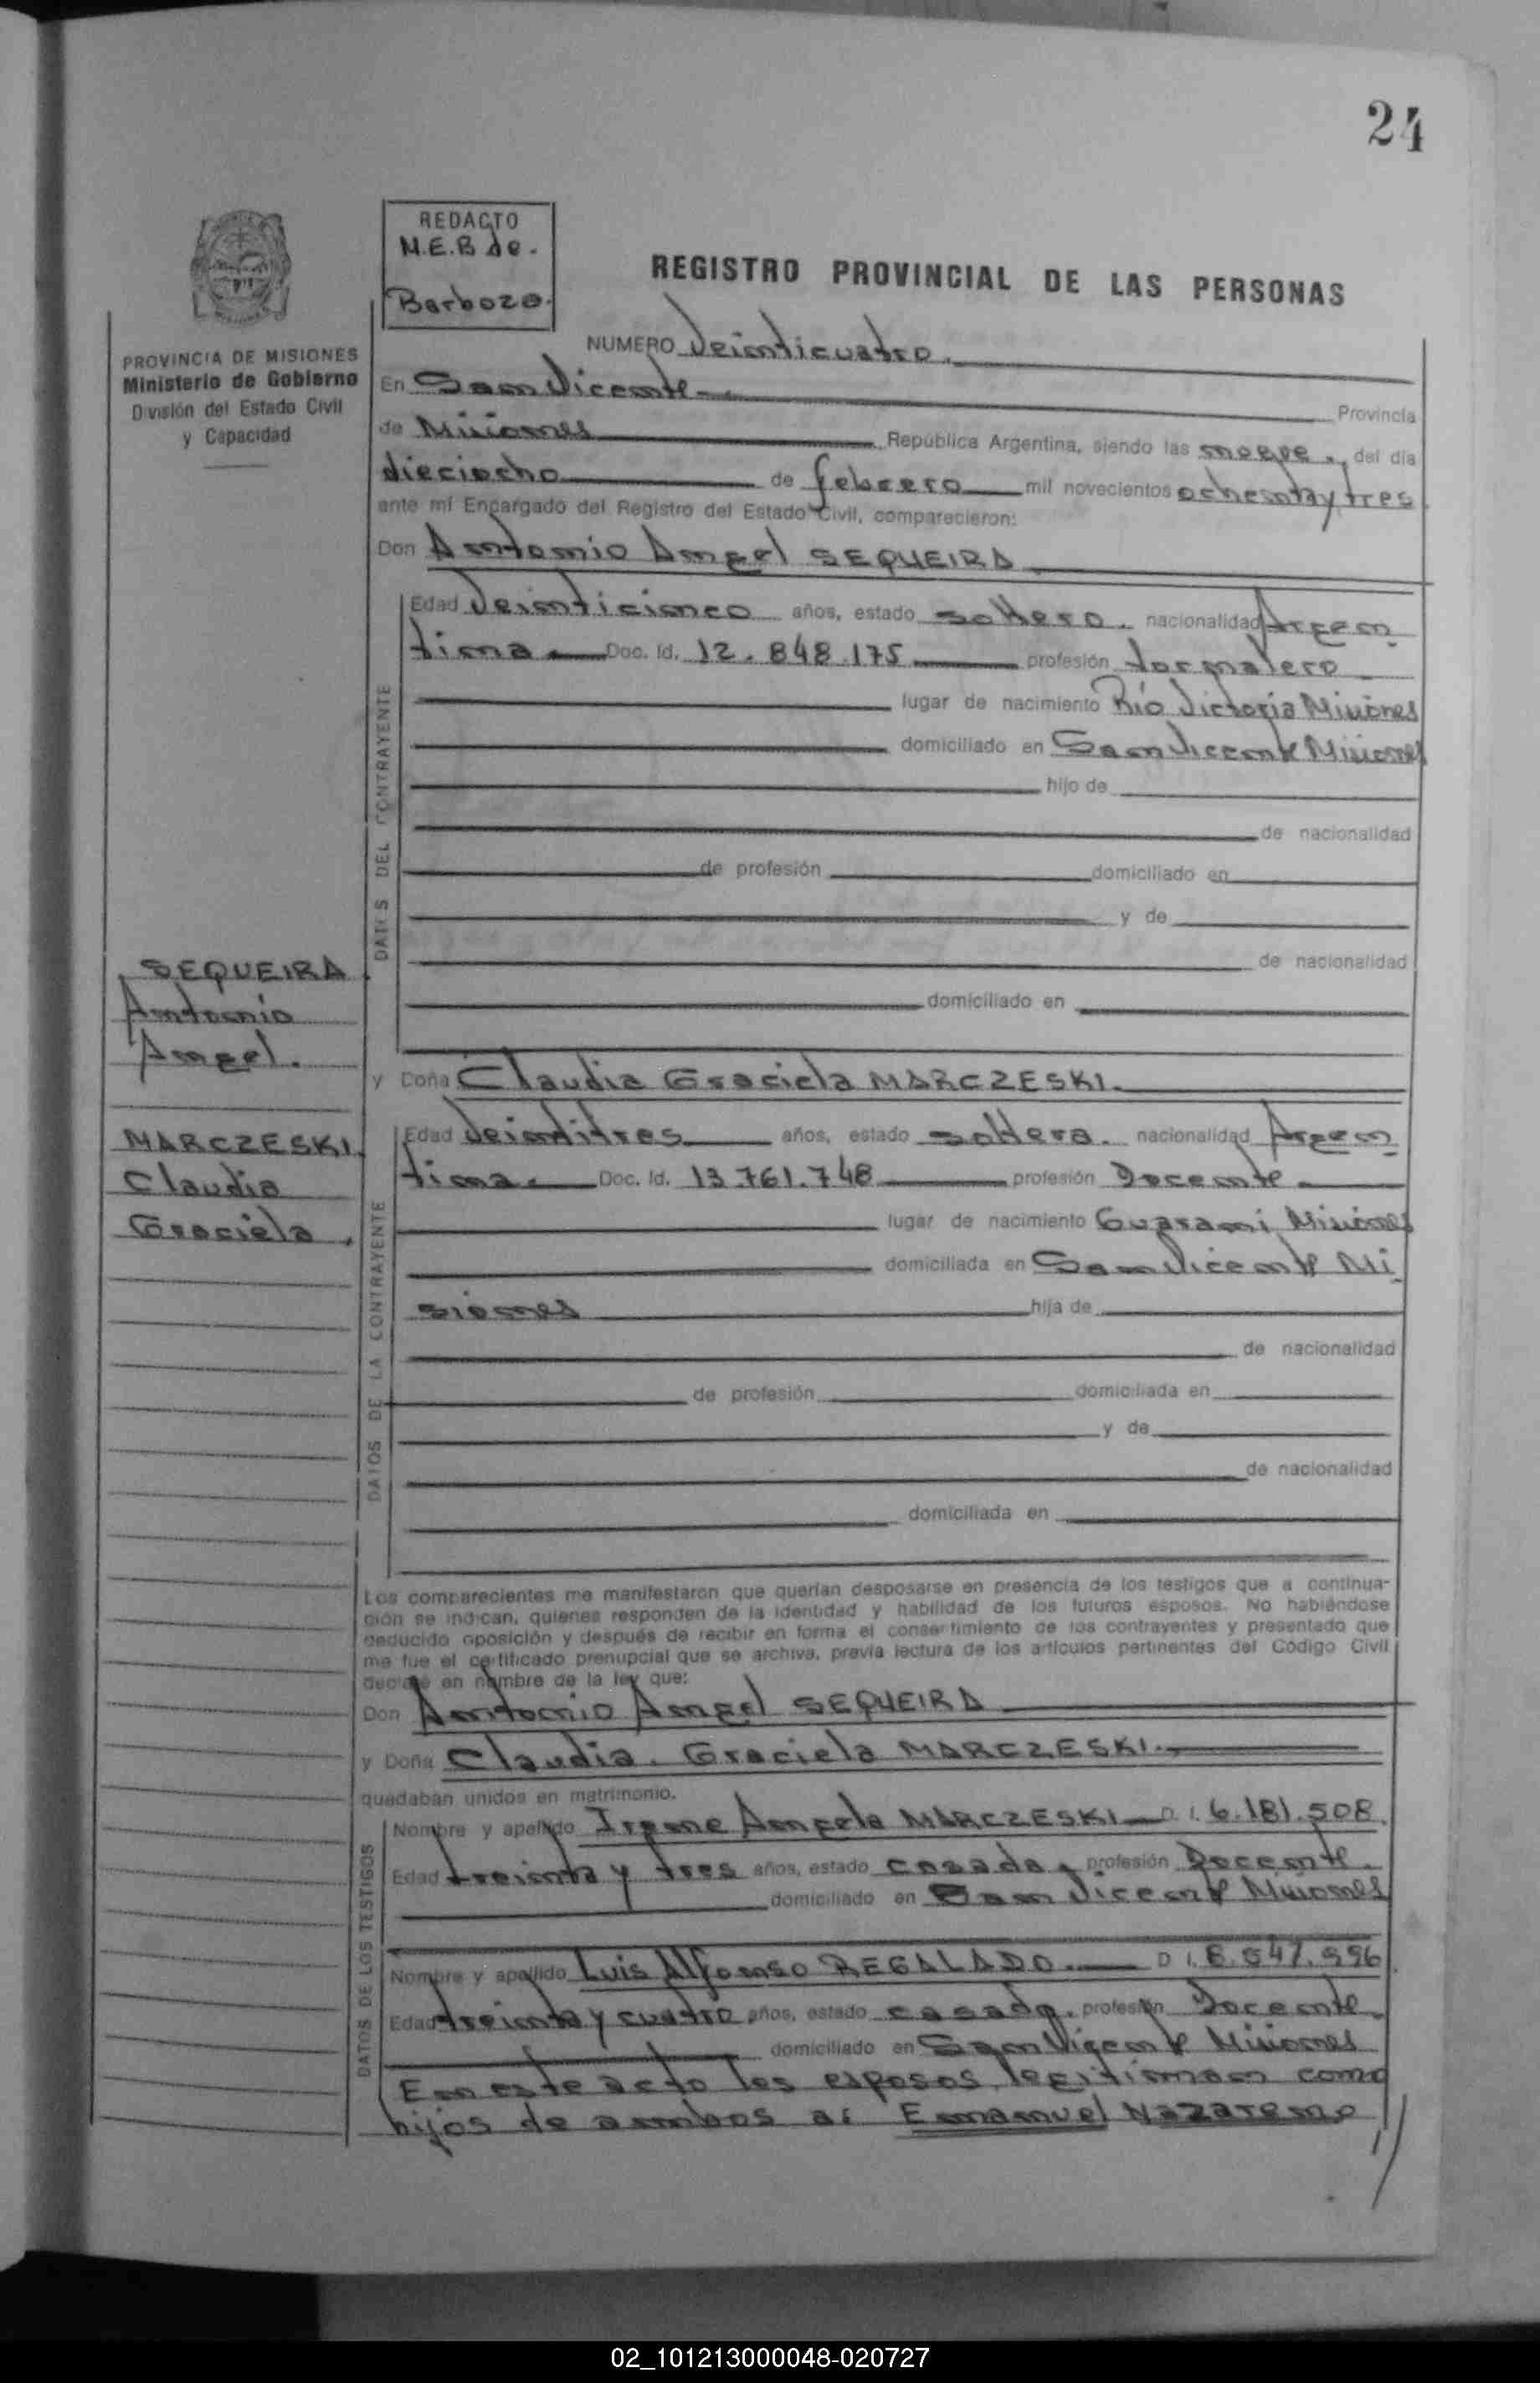 24
REDACTO
N.E.B de.
Barboza.
REGISTRO PROVINCIAL DE LAS PERSONAS
PROVINCIA DE MISIONES
Ministerio de Gobierno
División del Estado Civil
y Capacidad
NUMERO Veinticuatro.
En San Vicente Provincia
de Misiones República Argentina, siendo las nueve. del día
dieciocho de febrero mil novecientos ochenta y tres
ante mí Encargado del Registro del Estado Civil, comparecieron:
Don Antonio Angel SEQUEIRA
DATOS DEL CONTRAYENTE
Edad Veinticinco años, estado soltero. nacionalidad Argen
tina Doc. Id. 12.848.175 profesión Jornalero
lugar de nacimiento Río Victoria Misiones
domiciliado en San Vicente Misiones
hijo de
de nacionalidad
de profesión domiciliado en
y de
de nacionalidad
domiciliado en
SEQUEIRA
Antonio
Angel.
MARCZESKI
Claudia
Graciela
y Doña Claudia Graciela MARCZESKI.
DATOS DE LA CONTRAYENTE
Edad Veintitres años, estado soltera. nacionalidad Argen
tina Doc. Id. 13.761.748 profesión Docente
lugar de nacimiento Guarani Misiones
domiciliada en San Vicente Mi
siones hija de
de nacionalidad
de profesión domiciliada en
y de
de nacionalidad
domiciliada en
Los comparecientes me manifestaron que querían desposarse en presencia de los testigos que a continua-
ción se indican, quienes responden de la identidad y habilidad de los futuros esposos. No habiéndose
deducido oposición y después de recibir en forma el consentimiento de los contrayentes y presentado que
me fue el certificado prenupcial que se archiva, previa lectura de los artículos pertinentes del Código Civil
declaré en nombre de la ley que:
Don Antonio Angel SEQUEIRA
y Doña Claudia. Graciela MARCZESKI.
quedaban unidos en matrimonio.
DATOS DE LOS TESTIGOS
Nombre y apellido Irene Angela MARCZESKI D. I. 6.181.508
Edad treinta y tres años, estado casada, profesión Docente.
domiciliado en San Vicente Misiones
Nombre y apellido Luis Alfonso REGALADO. D I. 8.547.996
Edad treinta y cuatro años, estado casado, profesión Docente
domiciliado en San Vicente Misiones
En este acto los esposos legitiman como
hijos de ambos a: Emanuel Nazareno
02_101213000048-020727